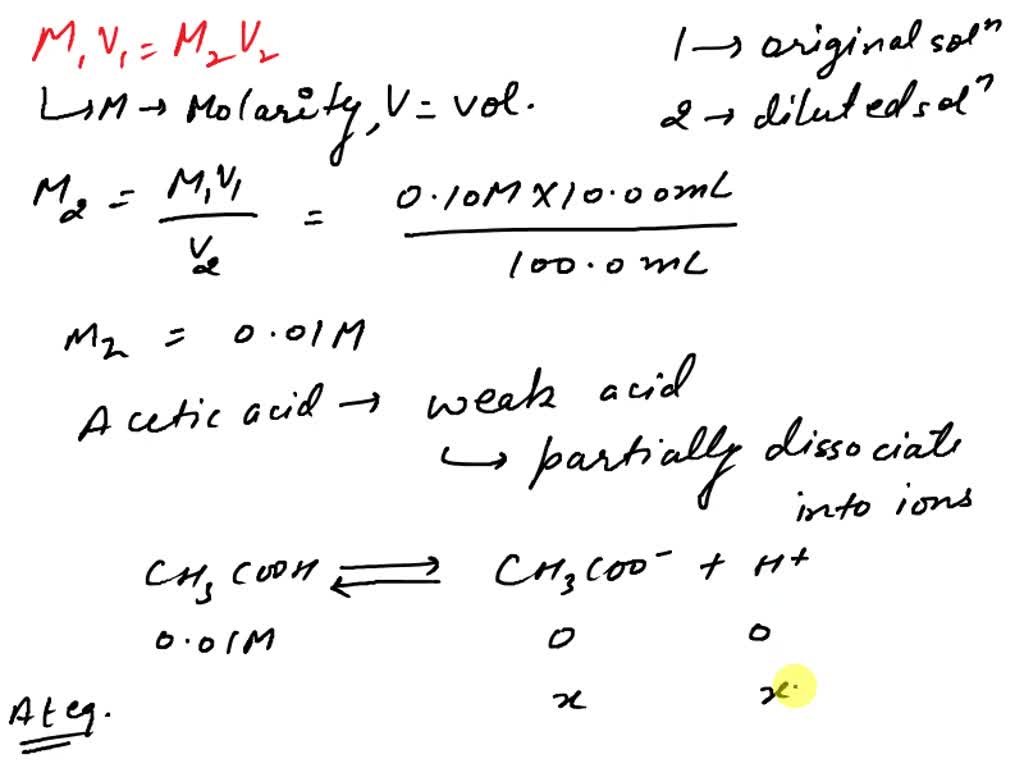 M₁V₁ = M₂V₂
1 → original solⁿ
↳ M → Molarity, V = vol.
2 → diluted solⁿ
M₂ = M₁V₁ / V₂ = 0.10M × 10.00mL / 100.0mL
M₂ = 0.01M
Acetic acid → weak acid
↳ partially dissociate
into ions
CH₃COOH ⇌ CH₃COO⁻ + H⁺
0.01M 0 0
At eq. x x